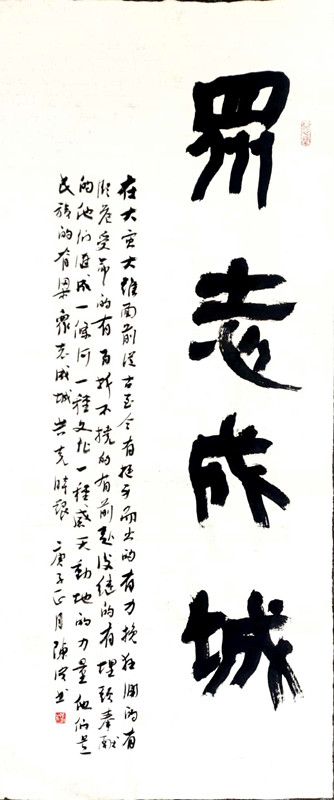 眾志成城
在大灾大難面前從古至今有挺身而出的有力挽狂瀾的有
臨危受命的有百折不撓的有前赴後继的有埋頭奉献
的他们匯成一條河一種文化一種感天動地的力量他们是
民族的脊梁衆志成城共克時艱 庚子正月陳书